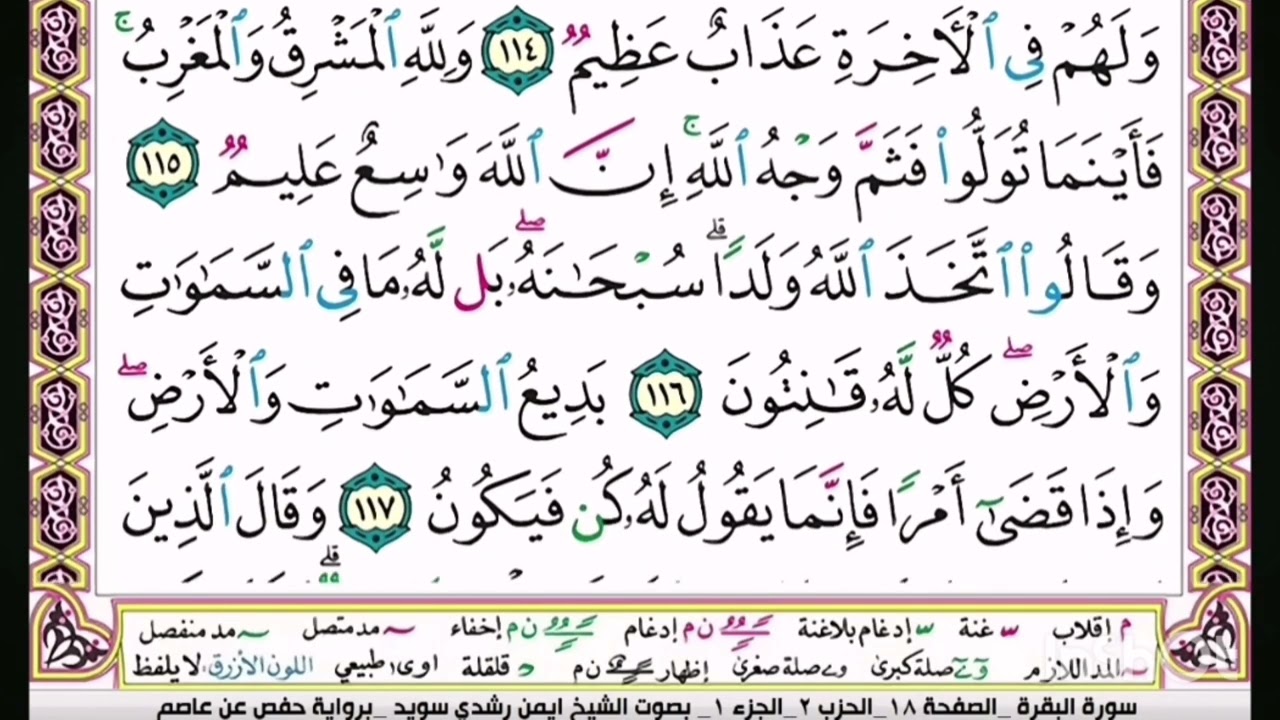 وَلَهُمْ فِى ٱلْأَخِرَةِ عَذَابٌ عَظِيمٌ ١١٤ وَلِلَّهِ ٱلْمَشْرِقُ وَٱلْمَغْرِبُ ۚ
فَأَيْنَمَا تُوَلُّوا۟ فَثَمَّ وَجْهُ ٱللَّهِ ۚ إِنَّ ٱللَّهَ وَٰسِعٌ عَلِيمٌ ١١٥
وَقَالُوا۟ ٱتَّخَذَ ٱللَّهُ وَلَدًا ۗ سُبْحَٰنَهُۥ ۖ بَل لَّهُۥ مَا فِى ٱلسَّمَٰوَٰتِ
وَٱلْأَرْضِ ۖ كُلٌّ لَّهُۥ قَٰنِتُونَ ١١٦ بَدِيعُ ٱلسَّمَٰوَٰتِ وَٱلْأَرْضِ ۖ
وَإِذَا قَضَىٰٓ أَمْرًا فَإِنَّمَا يَقُولُ لَهُۥ كُن فَيَكُونُ ١١٧ وَقَالَ ٱلَّذِينَ
م إقلاب غنة إدغام بلاغنة ن م إدغام ن م إخفاء مد متصل مد منفصل
المد اللازم صلة كبرى صلة صغرى إظهار ن م قلقلة اوى طبيعي اللون الأزرق لا يلفظ
سورة البقرة _الصفحة ١٨_الحزب ٢_الجزء ١_ بصوت الشيخ ايمن رشدي سويد _برواية حفص عن عاصم